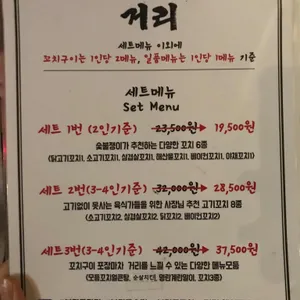 거리
세트메뉴 이외에
꼬치구이는 1인당 2메뉴, 일품메뉴는 1인당 1메뉴 기준
세트메뉴
Set Menu
세트 1번 (2인기준) 23,500원▶ 19,500원
숯불쟁이가 추천하는 다양한 꼬치 6종
(닭고기꼬치1, 소고기꼬치1, 삼겹살꼬치1, 해산물꼬치1, 베이컨꼬치1, 야채꼬치1)
세트 2번(3-4인기준) 32,000원▶ 28,500원
고기없이 못사는 육식가들을 위한 사장님 추천 고기꼬치 8종
(소고기꼬치2, 삼겹살꼬치2, 닭꼬치2, 베이컨꼬치2)
세트3번(3-4인기준) 42,000원▶ 37,500원
꼬치구이 포장마차 거리를 느낄 수 있는 다양한 메뉴모둠
(모듬꼬치얼큰탕, 명란계란말이, 꼬치3종)